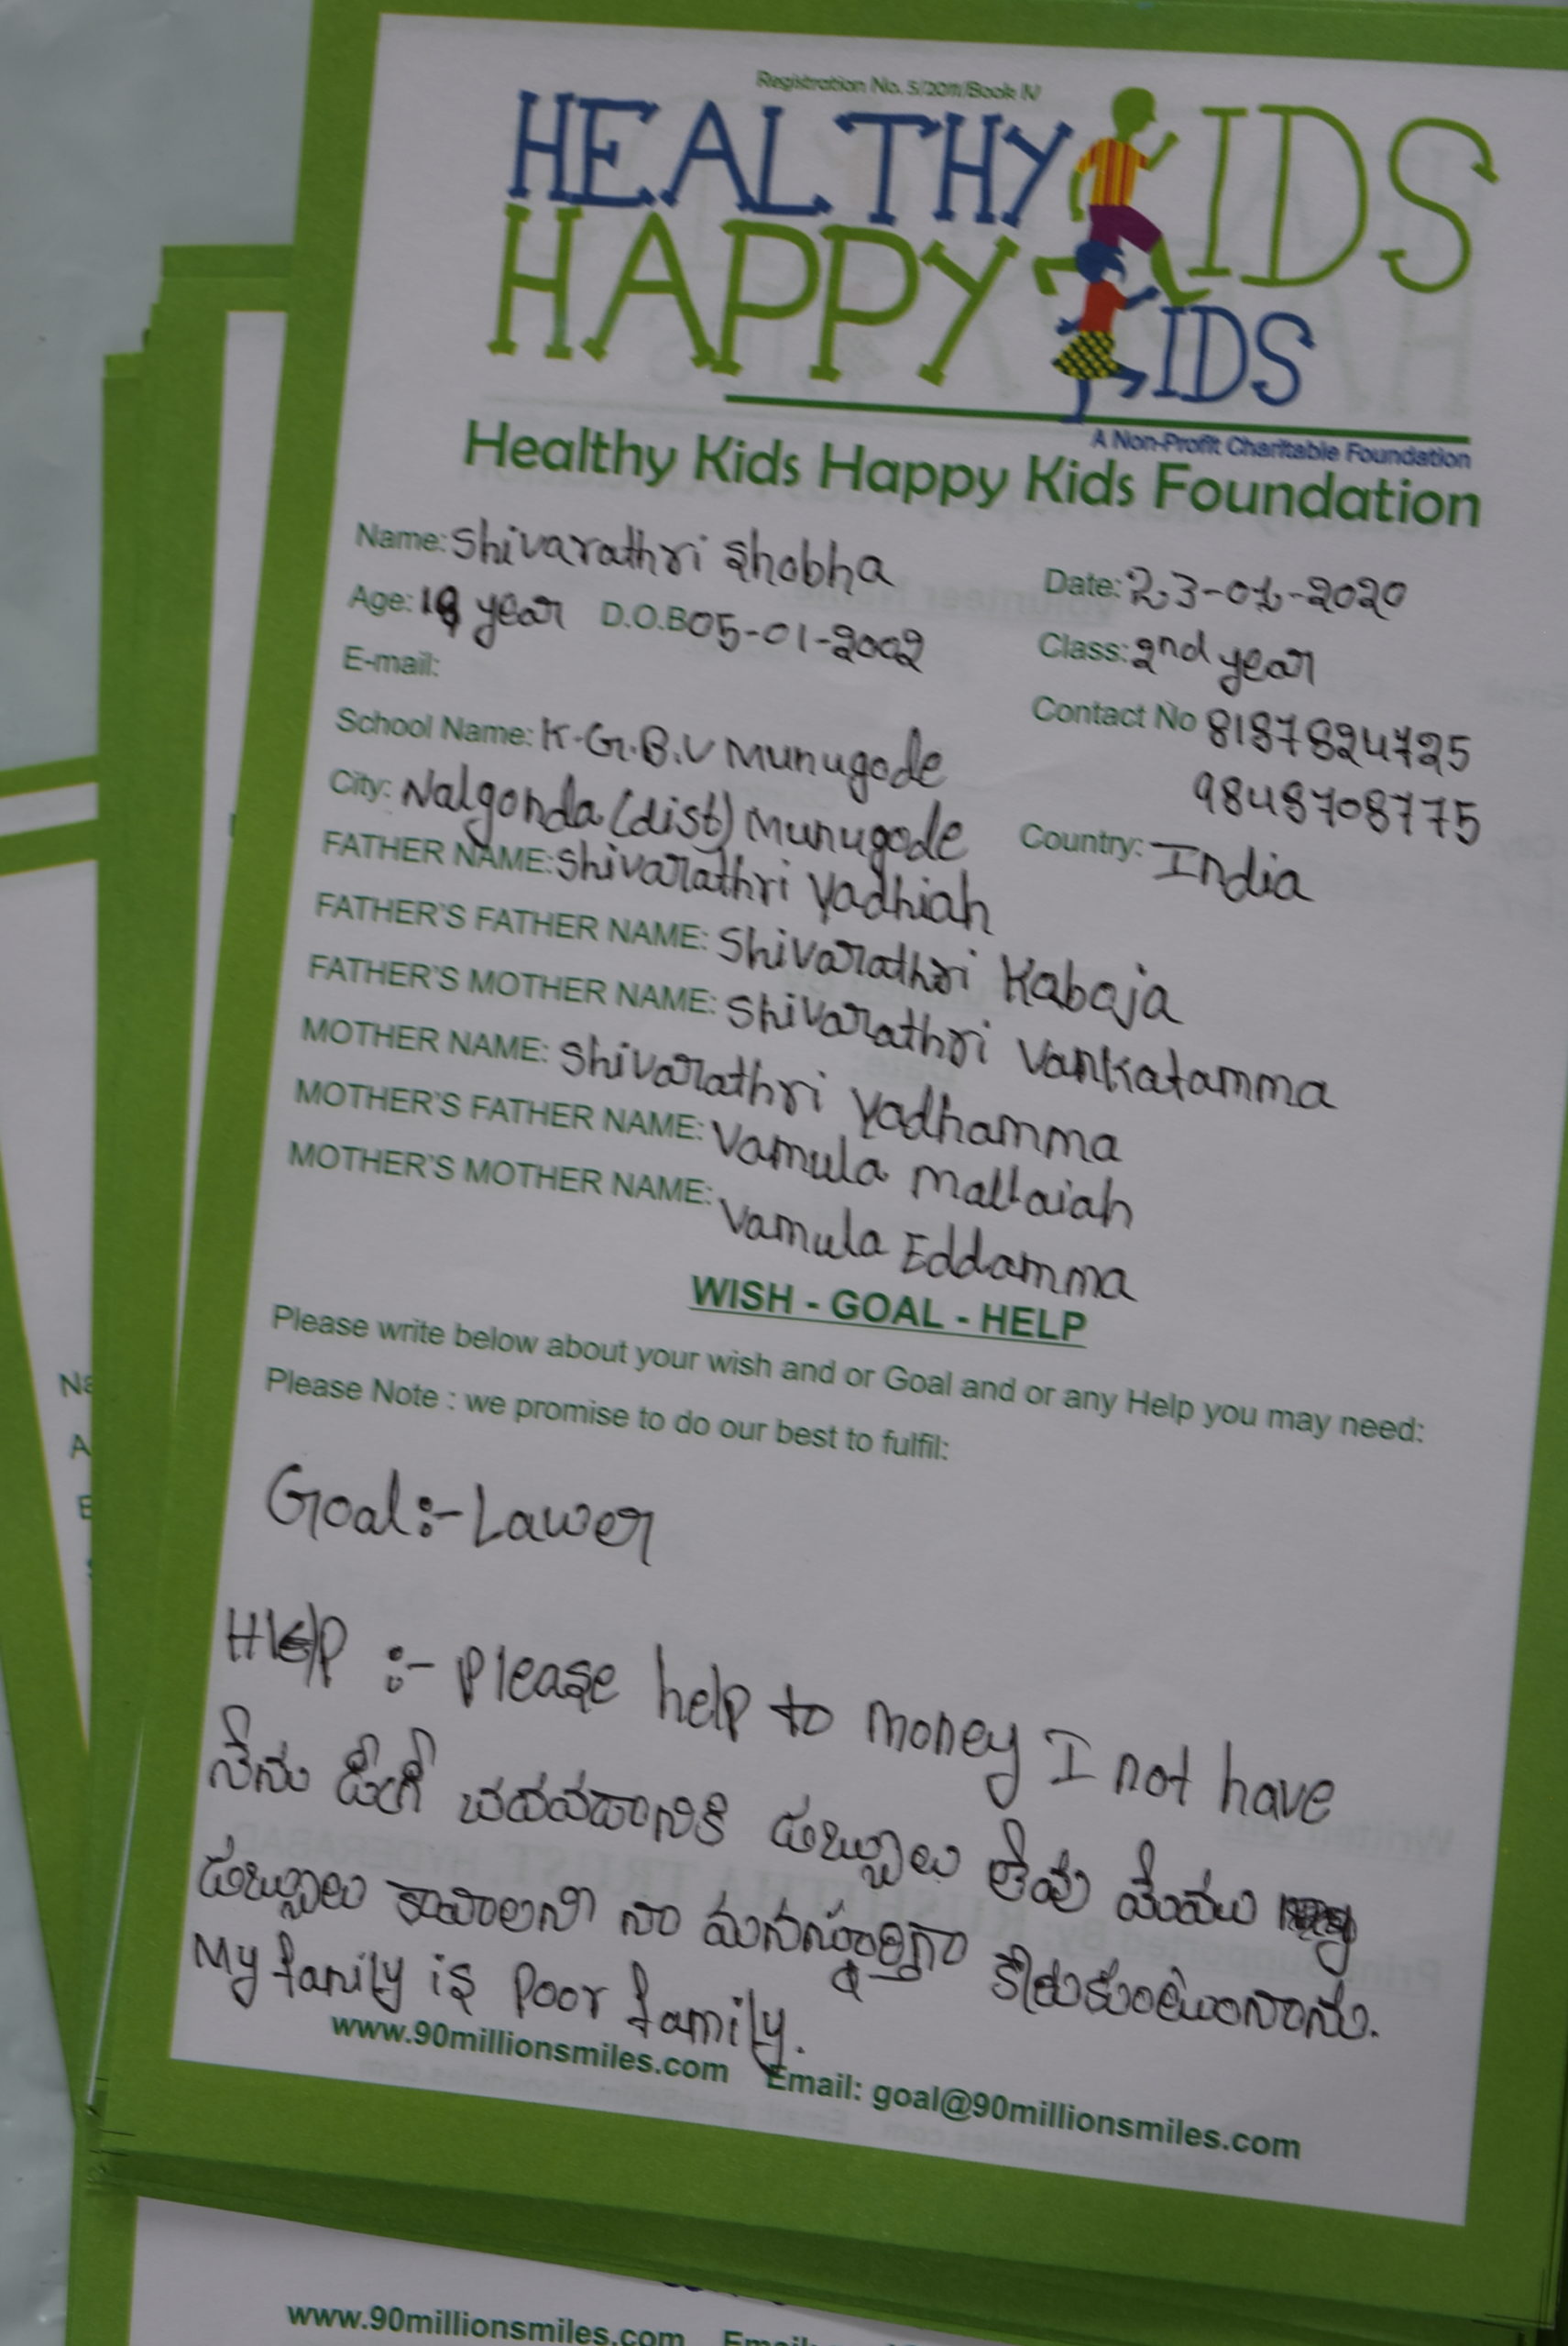 Registration No. 5/2011/Book IV
HEALTHY KIDS
HAPPY KIDS
A Non-Profit Charitable Foundation
Healthy Kids Happy Kids Foundation
Name: Shivarathri Shobha
Date: 23-01-2020
Age: 18 year D.O.B 05-01-2002
Class: 2nd year
E-mail:
Contact No 8187824725
9848708775
School Name: K.G.B.V Munugode
City: Nalgonda (dist) Munugode
Country: India
FATHER NAME: Shivarathri Yadhiah
FATHER'S FATHER NAME: Shivarathri Kabaja
FATHER'S MOTHER NAME: Shivarathri Vankatamma
MOTHER NAME: Shivarathri Yadhamma
MOTHER'S FATHER NAME: Vamula Mallaiah
MOTHER'S MOTHER NAME: Vamula Eddamma
WISH - GOAL - HELP
Please write below about your wish and or Goal and or any Help you may need:
Please Note : we promise to do our best to fulfil:
Goal:- Lawer
Help :- Please help to money I not have
నేను డిగ్రీ చదవడానికి డబ్బులు లేవు మేము
డబ్బులు కావాలని నా మనస్ఫూర్తిగా కోరుకుంటున్నాను.
My family is poor family.
www.90millionsmiles.com Email: goal@90millionsmiles.com
www.90millionsmiles.com